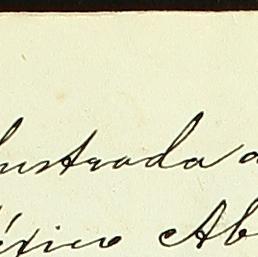 lustrada a
éxico Ab